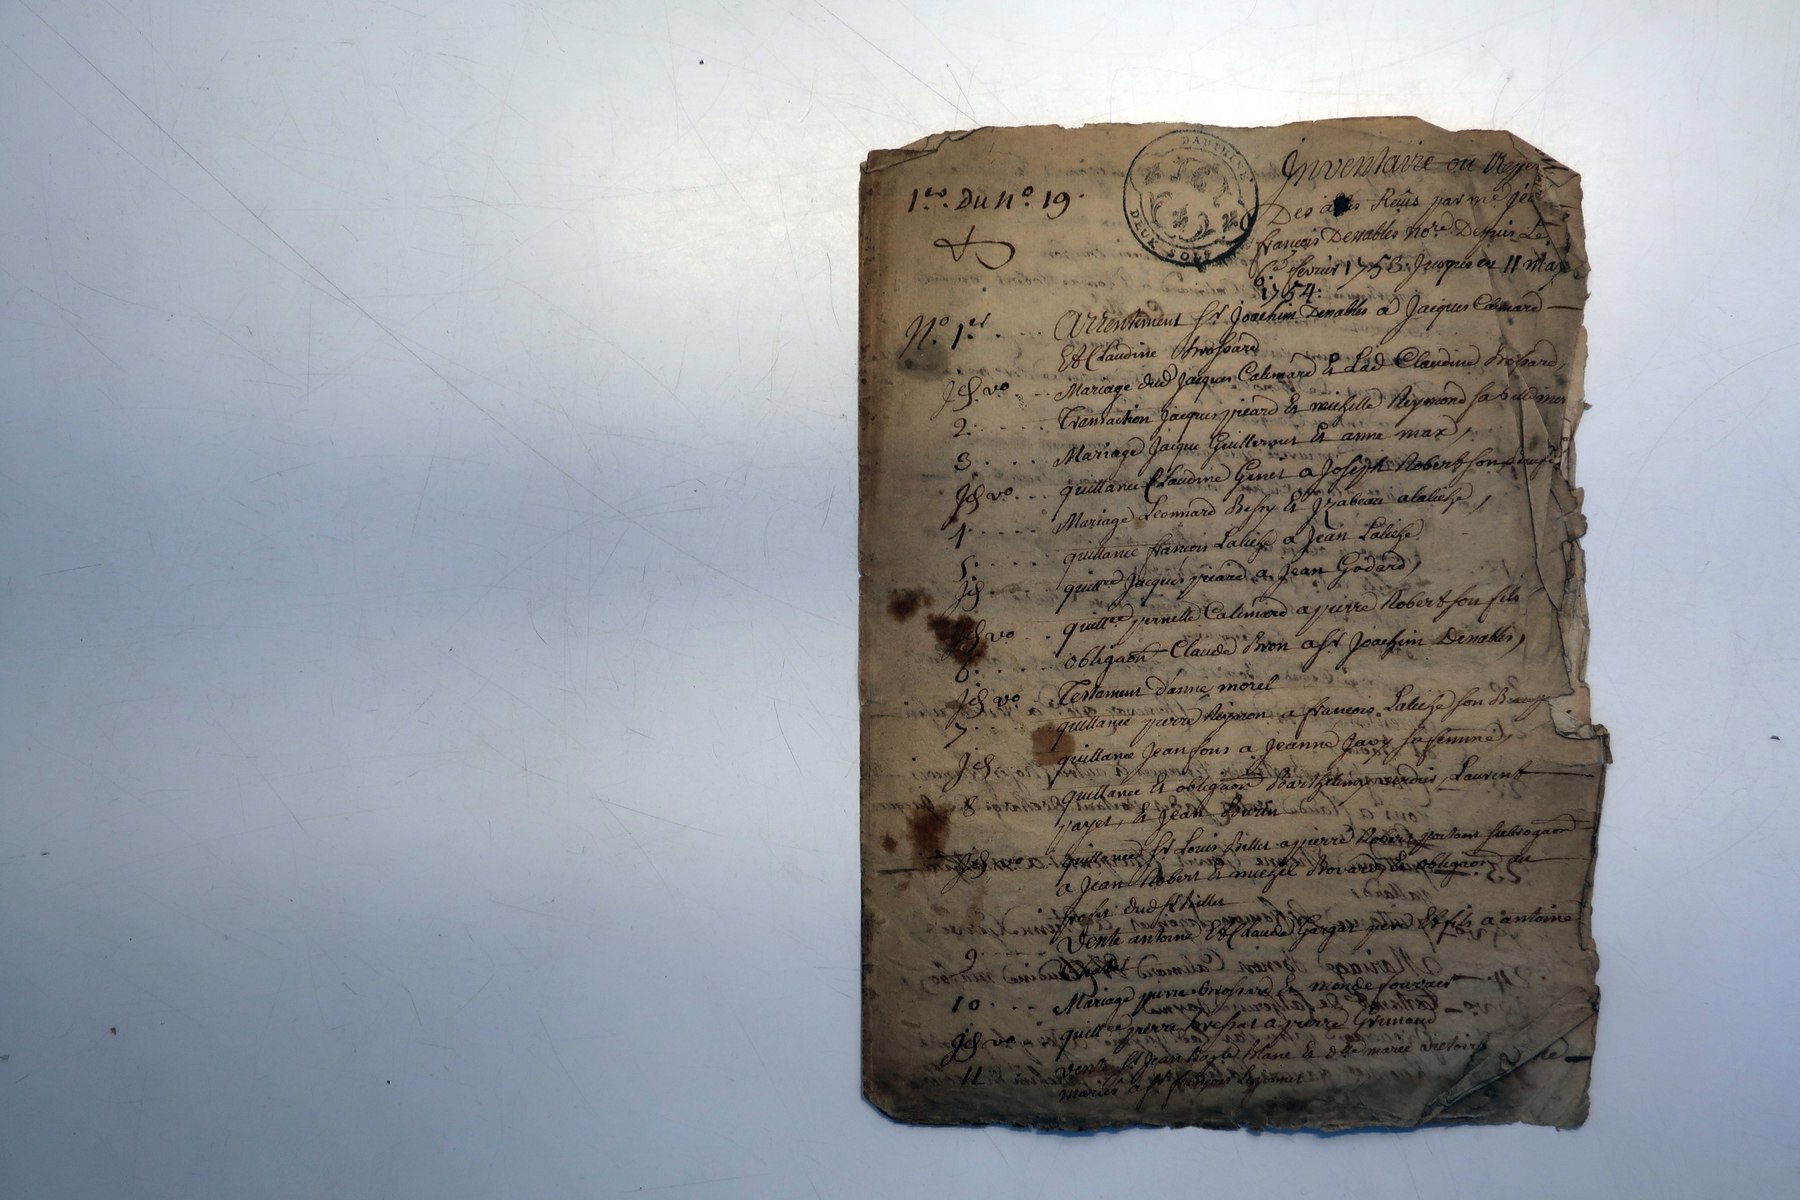 1.er Du n.o 19.
DAUPHINÉ.
DEUX SOLS
Inventaire ou
Des actes Reçus par me
françois Denables no.re Depuis Le
6.e fevrier 1753. Jusque au 11 may
1754:
N.o 1.er Arrentement Sr. Joachim Denables a Jacques Calimard
Et Claudine Brossard
Jd. vo. Mariage dud Jacques Calimard Et Lad Claudine Brossard,
2. Transaction Jacques piard Et michelle Reymond sa belle mere
3. Mariage Jacque Guillermet Et anne max,
Jd vo. quittance Claudine Genet a Joseph Robert son
4. Mariage Leonnard Et Izabeau
5. quittance francois a Jean
Jd quittce Jacques piard a Jean Godard,
Jd vo quittce pernette Calimard a pierre Robert son fils
6. obligaon Claude Bron a Sr Joachim Denables,
Jd vo. Testament d'anne morel
7. quittance pierre Reymon a francois son
Jd quittance Jean fous a Jeanne Javy sa femme,
8 quittance Et obligaon Barthelemy verdier, Laurent
payet, Et Jean
Jd vo quittance Sr Louis Billet a pierre Robert portant subrogaon
a Jean Robert Et michel Rovard, Et obligaon au
profit dud Sr billet
9. Vente antoine Et Claude Gargat pere Et fils a antoine
10. Mariage pierre Brossard Et
Jd vo. quittce pierre a pierre Grimaud
11 Vente Sr Jean Bapte Blanc Et dlle marie victoire
mariés a Sr françois